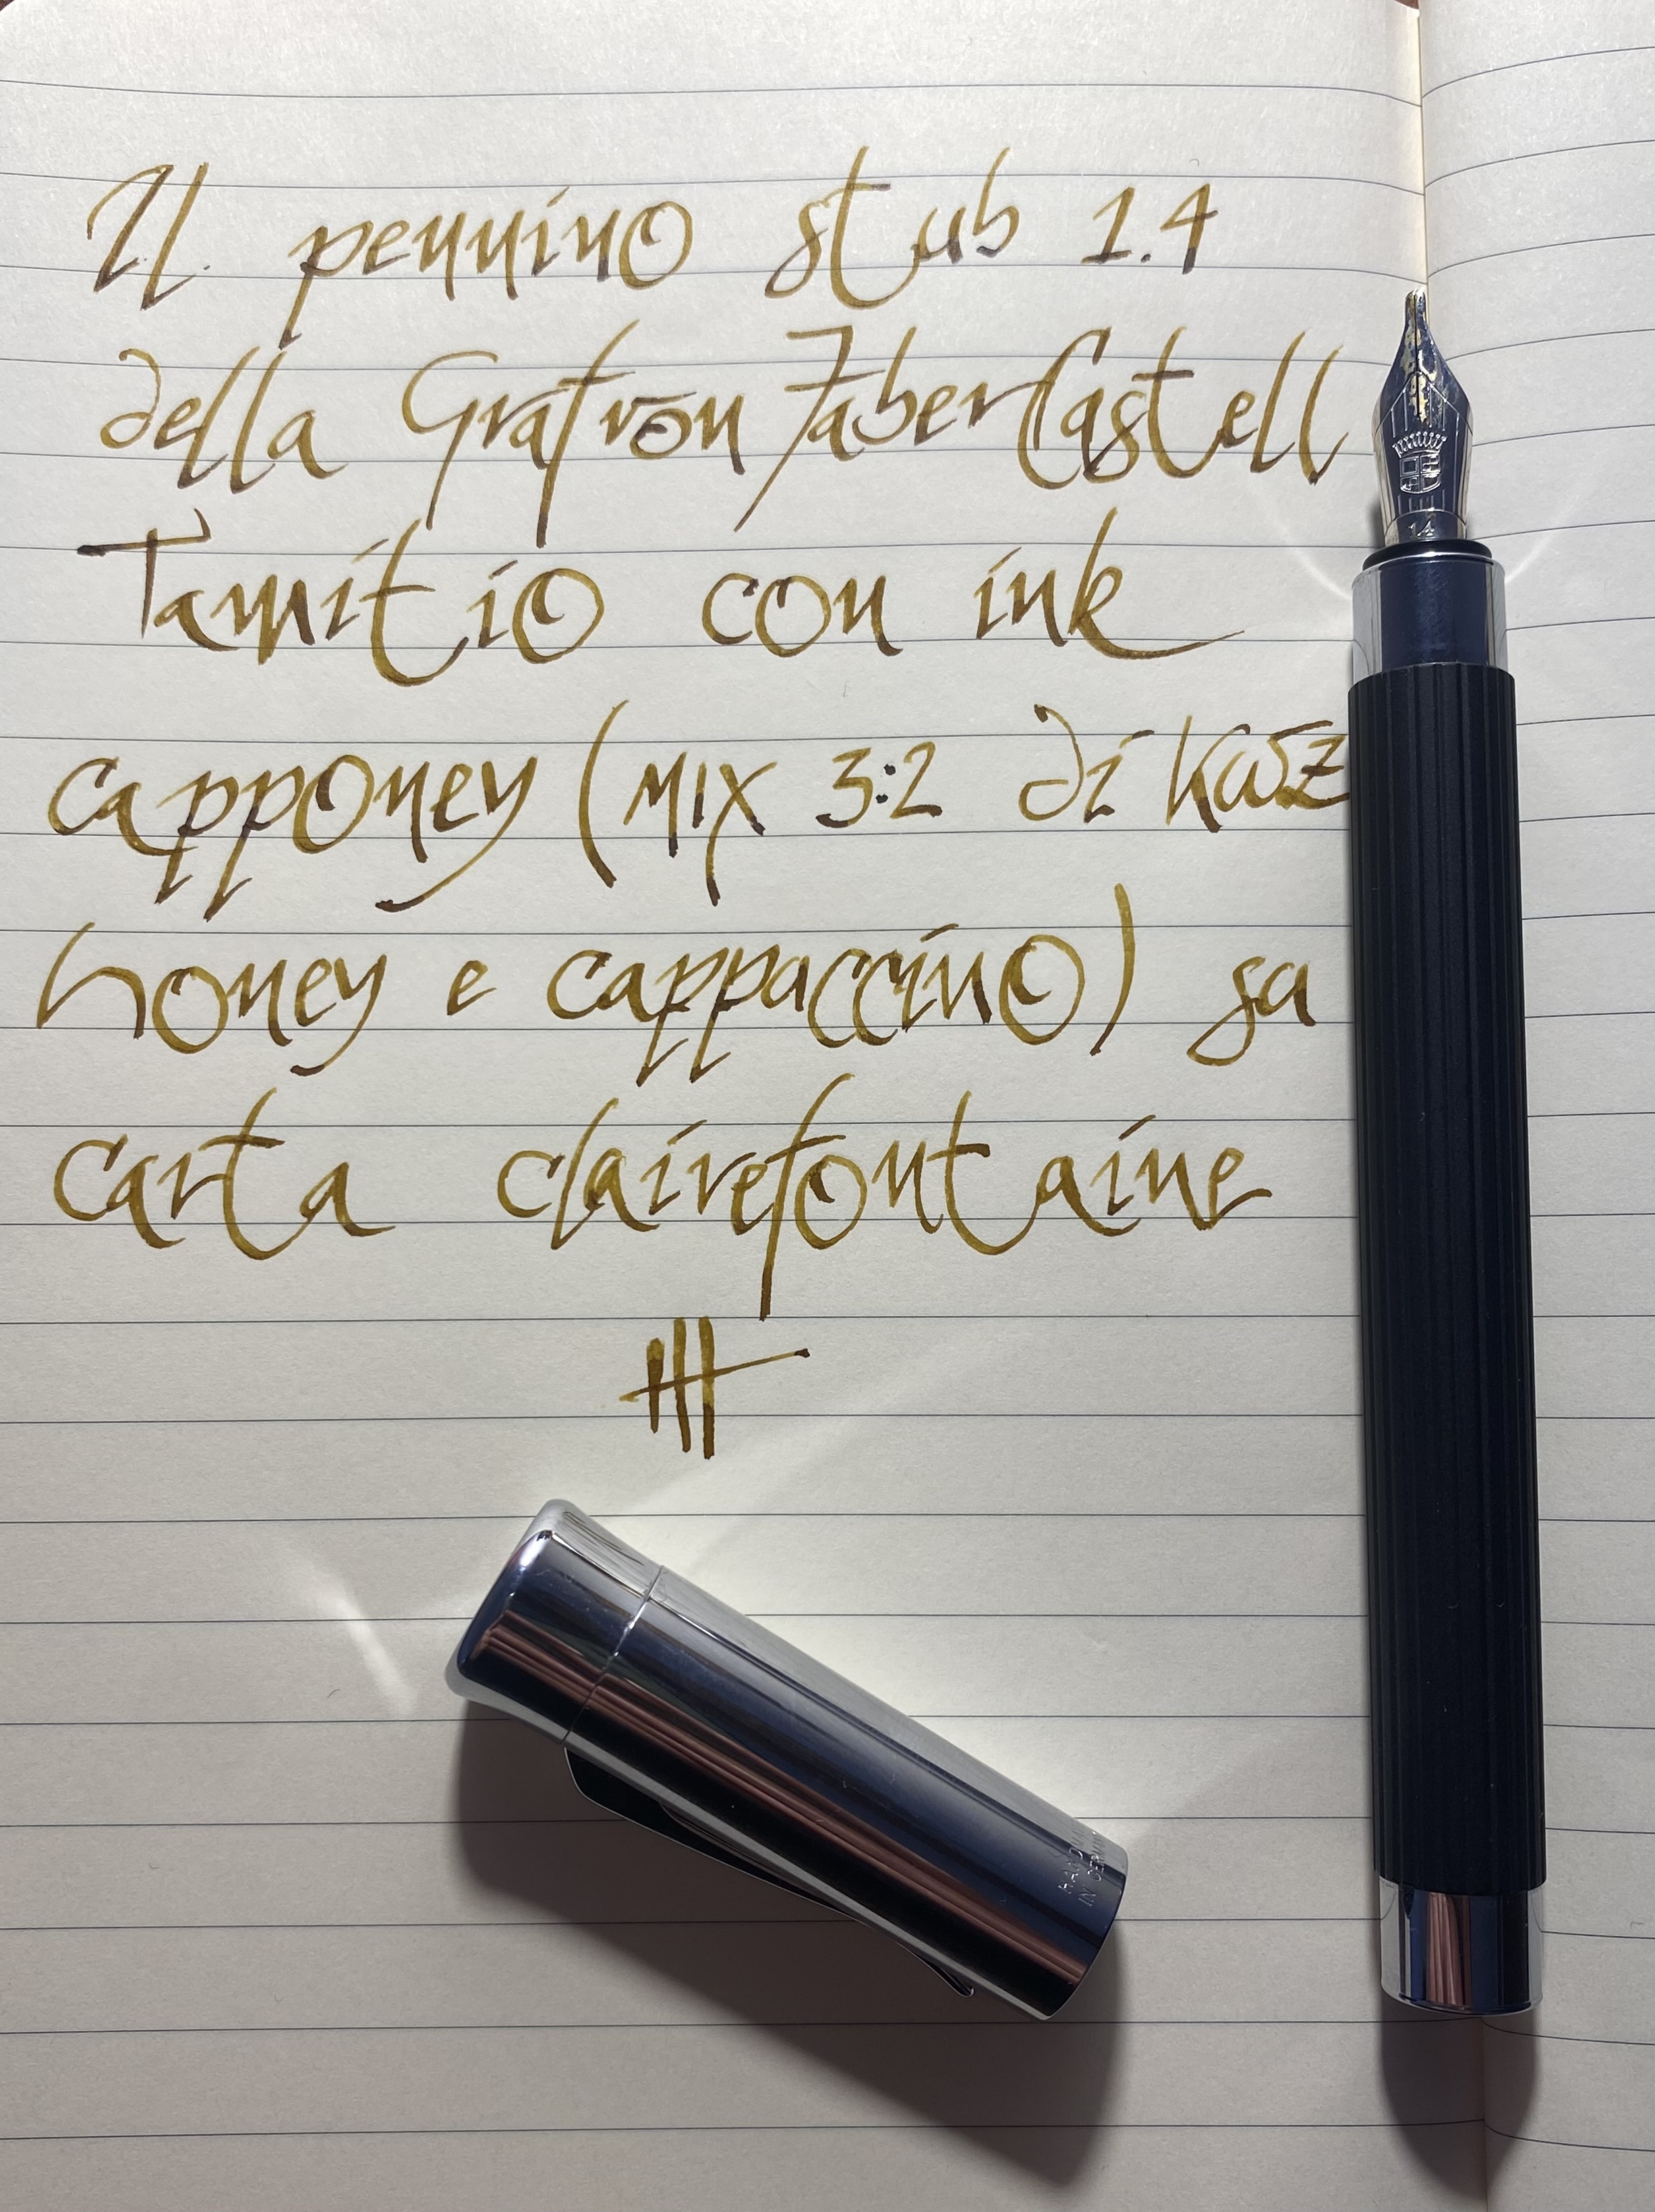 Il pennino stub 1.4
della Graf von Faber Castell
Tamitio con ink
capponey (MIX 3:2 di Kaw
honey e cappaccino) sa
carta clairefontaine
14
HAND
IN GERMA